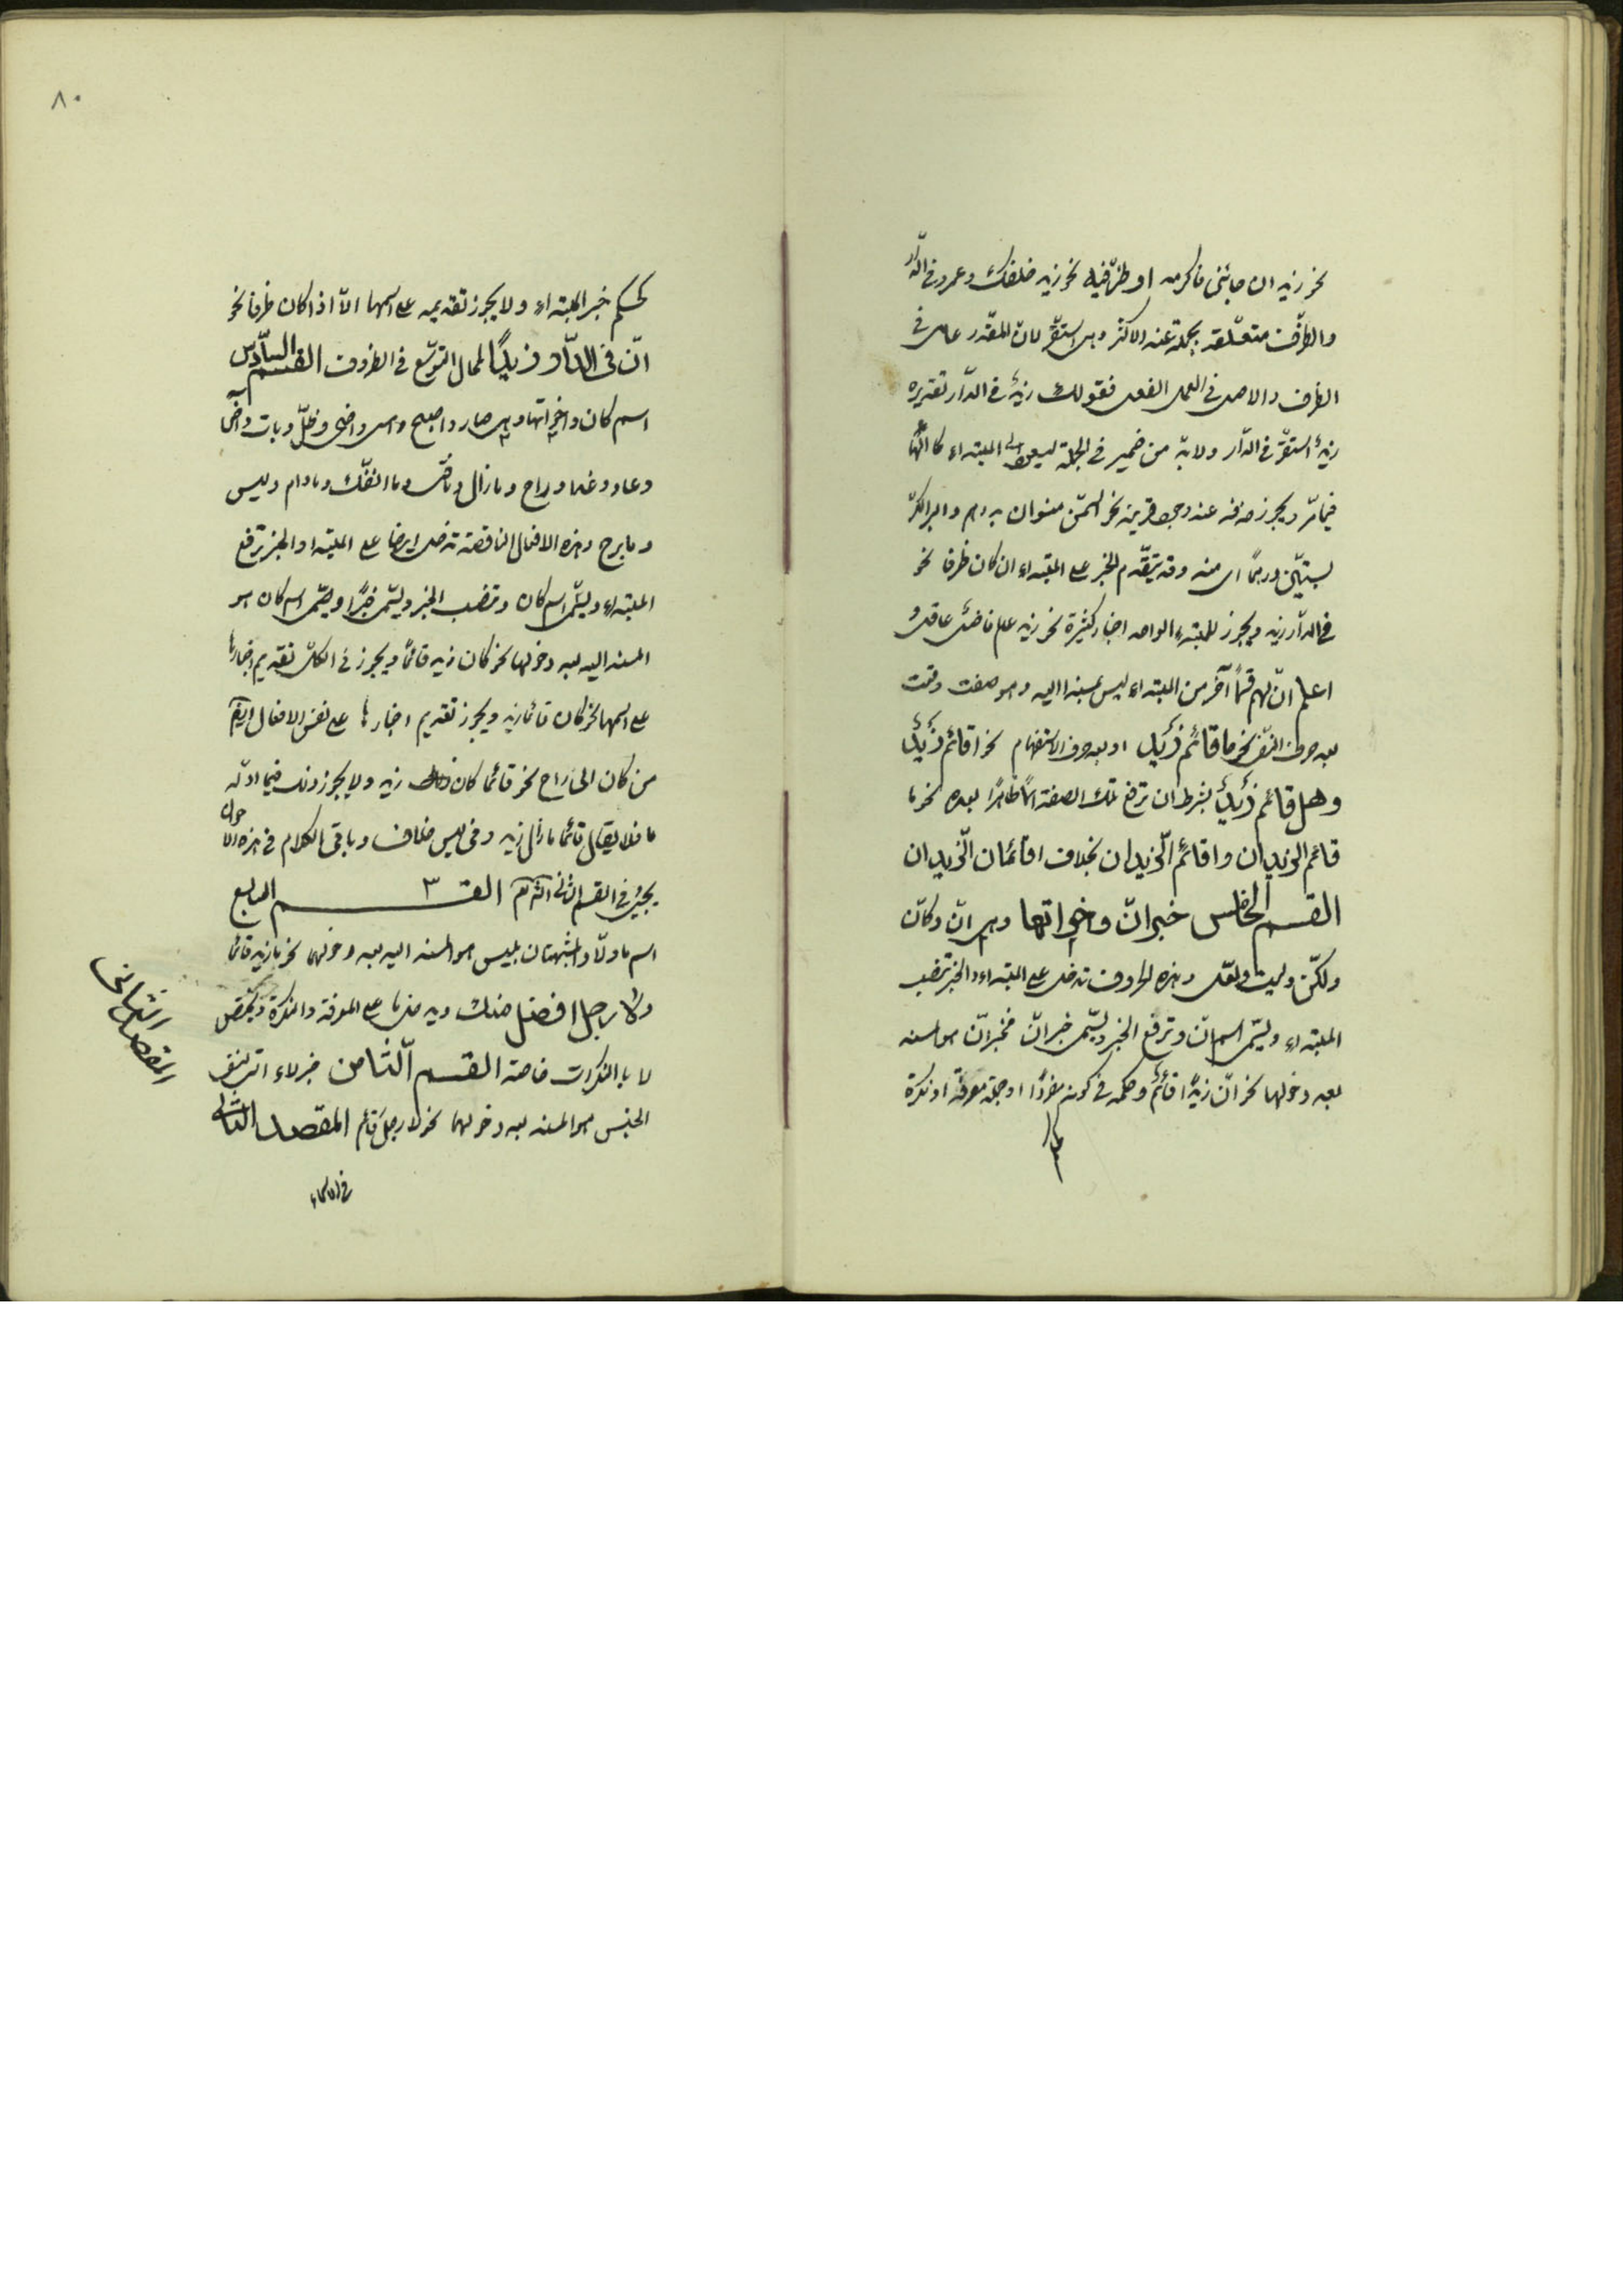 نحو زيد ان جائنى فاكرمه او ظرفية نحو زيد خلفك وعمرو فى الدّار
والظرف متعلقة بجملة عند الاكثر وهى استقرّ لانّ المقدّر عامل فى
الظرف والاصل فى العمل الفعل فقولك زيدٌ فى الدّار تقديره
زيدٌ استقرّ فى الدّار ولابدّ من ضمير فى الجملة ليعود الى المبتداء كالهاء
فيما مرّ ويجوز حذفه عند وجود قرينة نحو السمن منوان بدرهم والبر الكرّ
بستّين درهمًا اى منه وقد يتقدّم الخبر على المبتداء ان كان ظرفا نحو
فى الدّار زيد ويجوز للمبتدء الواحد اخبار كثيرة نحو زيد عالم فاضل عاقل و
اعلم انّ لهم قسمًا آخر من المبتداء ليس بمسندا اليه وهو صفت وقعت
بعد حرف النّفى نحو ما قائم زَيدٌ او بعد حرف الاستفهام نحو اقائم زَيدٌ
وهل قائم زيدٌ بشرط ان ترفع تلك الصفة اسمًا ظاهرًا بعده نحو ما
قائم الزيدان واقائم الزّيدان بخلاف اقائمان الزّيدان
القسم الخامس خبر انّ واخواتها وهى انّ وكانّ
ولكنّ وليت ولعلّ وهذه الحروف تدخل على المبتداء والخبر تنصب
المبتداء ويسمّى اسم انّ وترفع الخبر ويسمّى خبر انّ فخبر انّ هو المسند
بعد دخولها نحو انّ زيدًا قائمٌ وحكمه فى كونه مفردًا او جملة معرفة او نكرة
٨٠
كحكم خبر المبتداء ولا يجوز تقديمه على اسمها الّا اذا كان ظرفا نحو
انّ فى الدّار زيدًا لمجال التوسّع فى الظروف القسم السّادس
اسم كان واخواتها وهى صار واصبح وامسى واضحى وظلّ وبات واض
وعاد وغدا وراح وما زال وما فتى وما انفكّ وما دام وليس
وما برح وهذه الافعال الناقصة تدخل ايضا على المبتداء والخبر ترفع
المبتداء ويسمّى اسم كان وتنصب الخبر ويسمّى خبرًا ويسمّى اسم كان هو
المسند اليه بعد دخولها نحو كان زيد قائمًا ويجوز فى الكلّ تقديم اخبارها
على اسمها نحو كان قائما زيد ويجوز تقديم اخبارها على نفس الافعال ايضا
من كان الى راح نحو قائما كان زيد ولا يجوز ذلك فيما اوّله
ما فلا يقال قائما ما زال زيد وفى ليس خلاف وباقى الكلام فى هذه الا
يجيئ فى القسم الثانى القسم السابع
اسم ما ولا المشبّهتان بليس هو المسند اليه بعد دخولهما نحو ما زيد قائما
ولا رجل افضل منك ويدخل ما على المعرفة والنكرة ويختص
لا بالنكرات خاصة القسم الثّامن خبر لاء التى لنفى
الجنس هو المسند بعد دخولهما نحو لا رجل قائم المقصد الثانى
فى الاسماء
المقصد الثانى